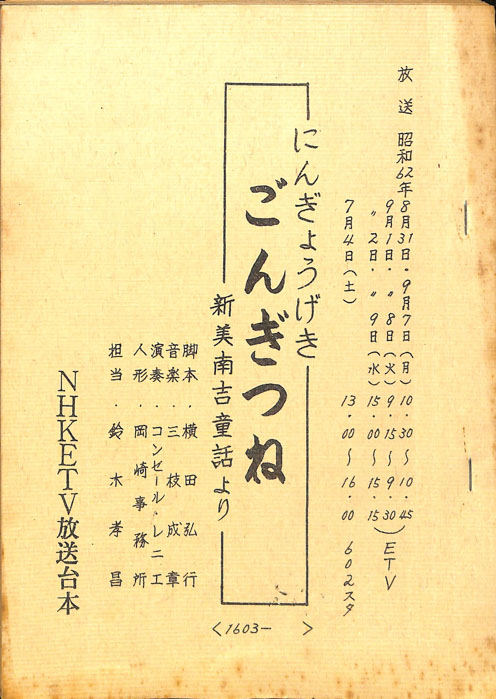 放送 昭和62年8月31日・9月7日(月)10・30〜10・45
9月1日・〃8日(火)9・15〜9・30
〃2日・〃9日(水)15・00〜15・15
ETV
7月4日(土) 13・00〜16・00 602スタ
にんぎょうげき
ごんぎつね
新美南吉童話より
脚本・横田弘行
音楽・三枝成章
演奏・コンセール・レニエ
人形・岡崎事務所
担当・鈴木孝昌
NHKETV放送台本
<1603- >